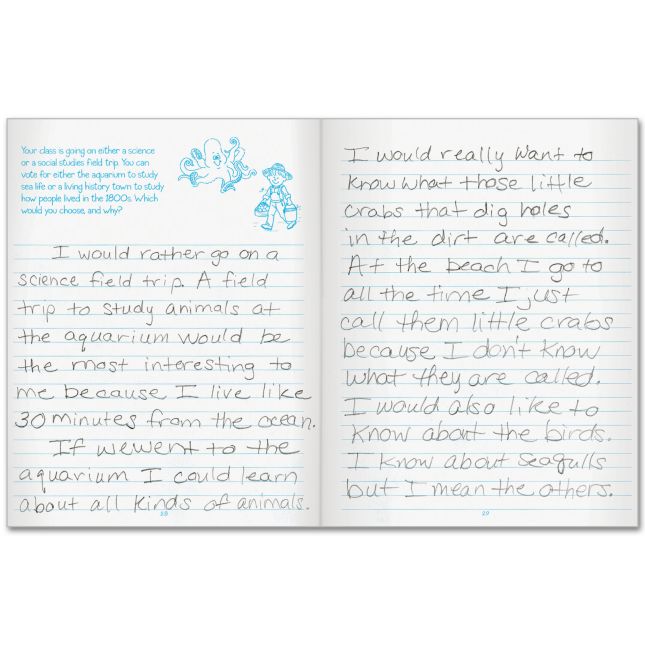 Your class is going on either a science
or a social studies field trip. You can
vote for either the aquarium to study
sea life or a living history town to study
how people lived in the 1800s. Which
would you choose, and why?
I would rather go on a
science field trip. A field
trip to study animals at
the aquarium would be
the most interesting to
me because I live like
30 minutes from the ocean.
If wewent to the
aquarium I could learn
about all kinds of animals.
28
I would really want to
know what those little
crabs that dig holes
in the dirt are called.
At the beach I go to
all the time I just
call them little crabs
because I don't know
what they are called.
I would also like to
know about the birds.
I know about seagulls
but I mean the others.
29